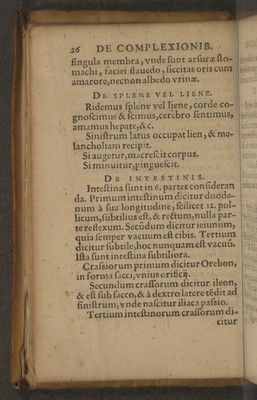 26 DE COMPLEXIONIB.
singula membra, vnde sunt arsuræ sto-
machi, faciei flauedo, siccitas oris cum
amarore, necnon albedo vrinæ.
DE SPLENE VEL LIENE.
Ridemus splene vel liene, corde co-
gnoscimus & scimus, cerebro sentimus,
amamus hepate, &c.
Sinistrum latus occupat lien, & me-
lancholiam recipit.
Si augetur, macrescit corpus.
Si minuitur, pinguescit.
DE INTESTINIS.
Intestina sunt in 6. partes consideran
da. Primum intestinum dicitur duode-
num à sua longitudine, scilicet 12. pol-
licum, subtilius est, & rectum, nulla par-
te reflexum. Secūdum dicitur ieiunum,
quia semper vacuum est cibis. Tertium
dicitur subtile, hoc nunquam est vacuū.
Ista sunt intestina subtiliora.
Crassiorum primum dicitur Orebon,
in forma sacci, vnius orificij.
Secundum crassorum dicitur ileon,
& est sub sacco, & à dextro latere tēdit ad
sinistrum, vnde nascitur iliaca passio.
Tertium intestinorum crassorum di-
citur